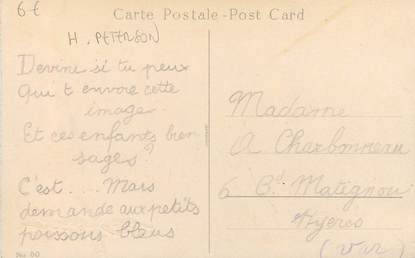 6€
Carte Postale - Post Card
H. PETERSON
Devine si tu peux
Qui t envoie cette
image
Et ces enfants bien
sages?
C'est.... Mais
demande aux petits
poissons bleus
Madame
A Charbonneau
6 Bd. Matignon
Hyères
(Var)